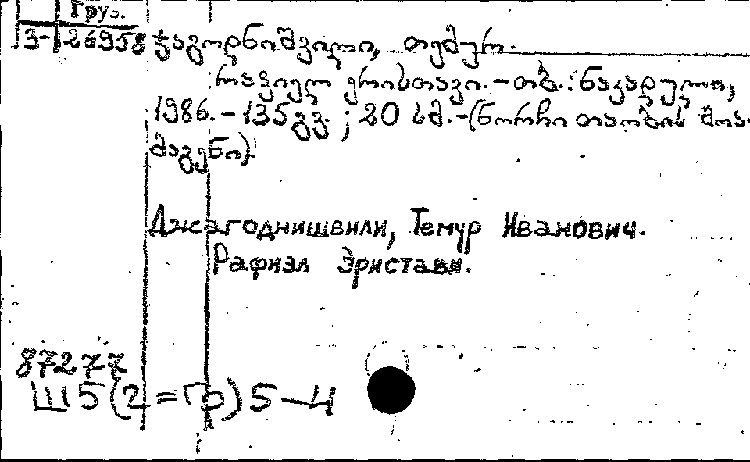 Груз.
3-26958 ჯაგოდნიშვილი, თემურ.
რაფიელ ერისთავი. – თბ.: ნაკადული,
1986. – 135 გვ. ; 20 სმ. – (ნორჩი თაობის შთა-
მაგონ.).
Джагоднишвили, Темур Иванович.
Рафиэл Эристави.
87277
Ш5(2=Гр)5-4